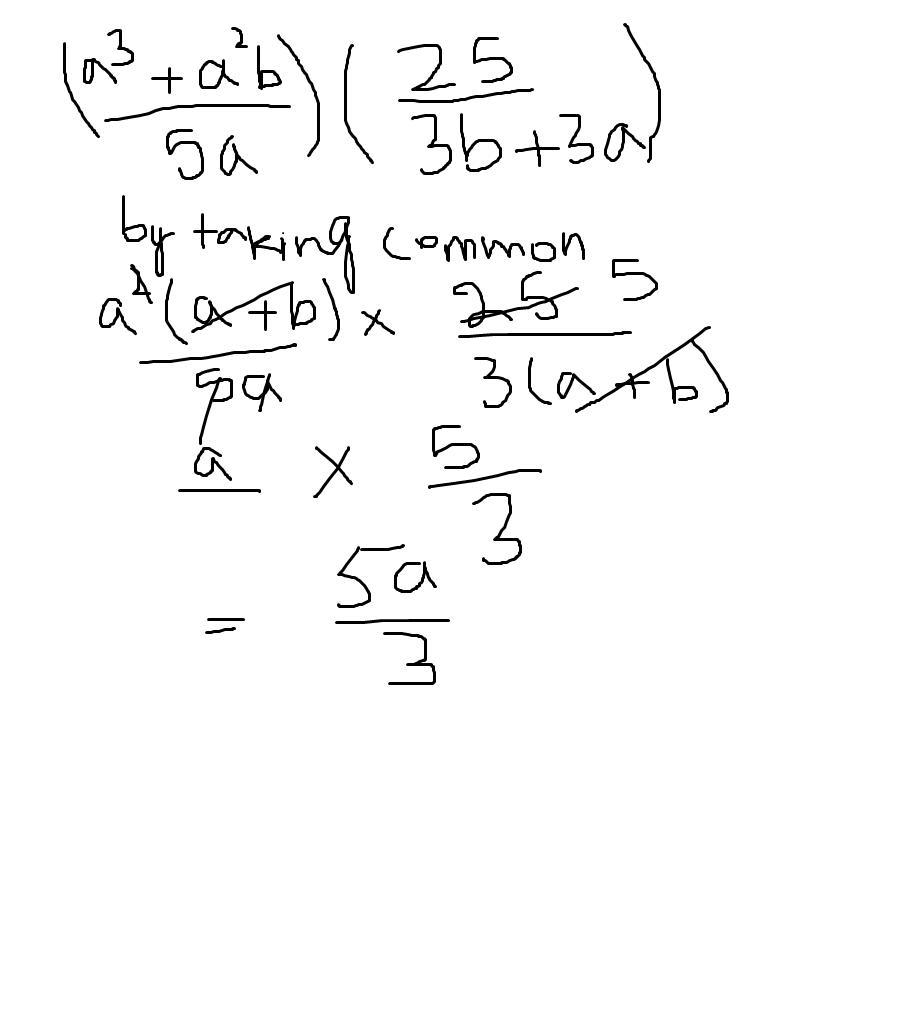 (a³ + a²b / 5a) (25 / 3b+3a)
by taking common
a² (a+b) / 5a × 25 5 / 3(a+b)
a × 5 / 3
= 5a / 3